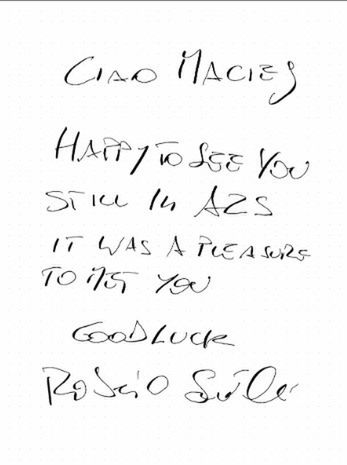 CIAO MACIEJ
HAPPY TO SEE YOU
STILL IN AZS
IT WAS A PLEASURE
TO MET YOU
GOODLUCK